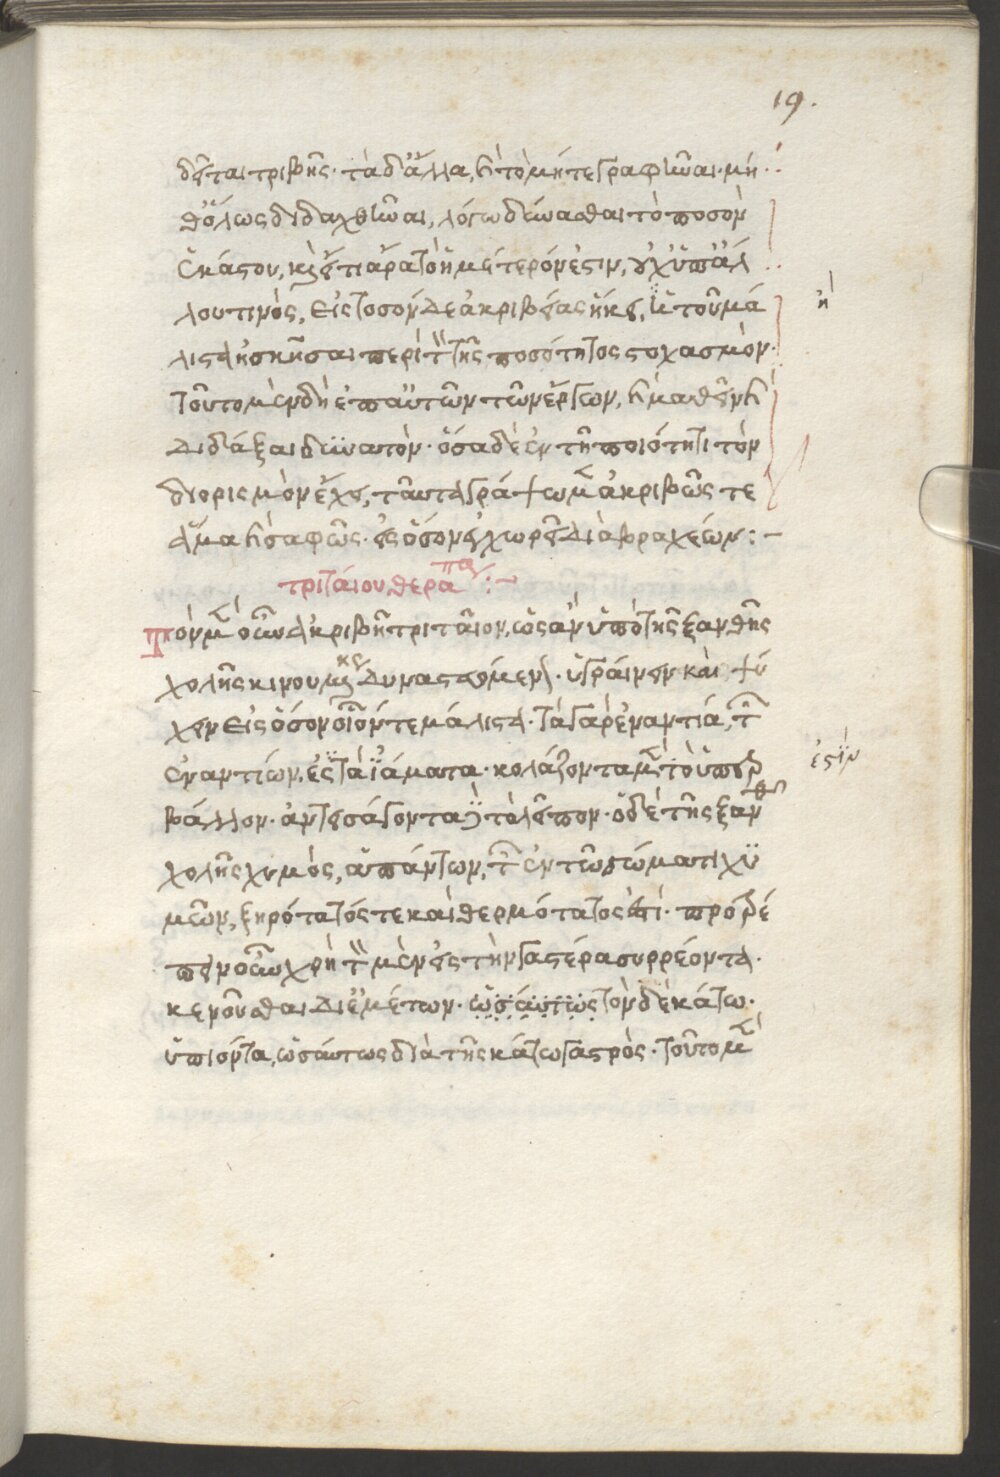 19.
δεῖται τριβῆς· τὰ δ' ἄλλα, καὶ τὸ μήτε γραφῆναι· μή
θ' ὅλως διδαχθῆναι, λόγω δύνασθαι τὸ ποσὸν
ἑκάστου, καὶ ἔτι ἄρα τὸ ἡμέτερόν ἐστιν, οὐχ ὑπ' ἄλ
λου τινὸς, εἰς τοσόνδε ἀκριβείας ἥκει,
ἢ
λιστα ἠσκῆσαι περὶ τὸν τῆς ποσότητος στοχασμὸν·
τοῦτο μὲν δὴ ἐπ' αὐτῶν τῶν ἔργων, καὶ μαθεῖν καὶ
διδάξαι δυνατόν· ὅσα δὲ ἐν τῆ ποιότητι τὸν
διορισμὸν ἔχει, ταῦτα γράψω μὲν ἀκριβῶς τε
ἅμα καὶ σαφῶς· εἰς ὅσον ἐγχωρεῖ διὰ βραχέων:—
τριταίου θεραπεία:—
Τὸν μὲν οὖν ἀκριβῆ τριταῖον, ὡς ἂν ὑπὸ τῆς ξανθῆς
χολῆς κινουμένης δυναστευόμεν· ὑγραίνειν καὶ ψύ
χειν εἰς ὅσον οἷόν τε μάλιστα· τὰ γὰρ ἐναντία, τῶν
ἐναντίων, ἐστὶ τὰ ἰάματα· κολάζοντα μὲν τὸ ὑπερ
ἐστὶν
βάλλον· ἀντεισάγοντα δὲ τὸ λεῖπον· ὁ δὲ τῆς ξανθῆς
χολῆς χυμὸς, ἁπάντων, τῶν ἐν τῶ σώματι χυ
μῶν, ξηρότατός τε καὶ θερμότατός ἐστι· προτρέ
πειν οὖν χρὴ τὸν μὲν εἰς τὴν γαστέρα συρρέοντα·
κενοῦσθαι δι' ἐμέτων· ὡσαύτως τὸν δὲ κάτω·
ὑπιόντα, ὡσαύτως διὰ τῆς κάτω γαστρός· τοῦτο μὲν